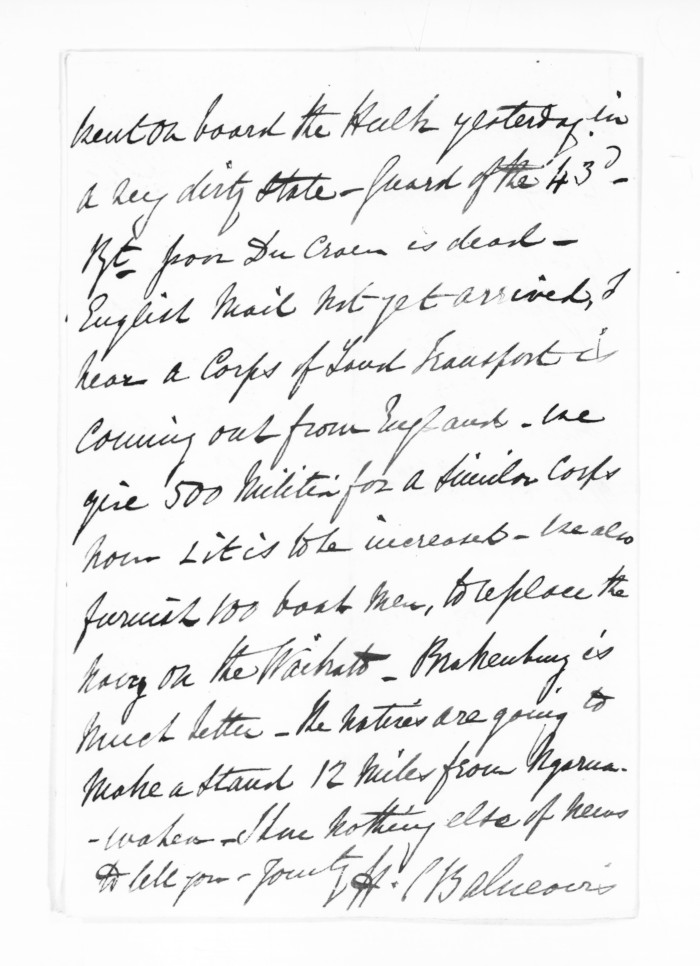 went on board the Hulk yesterday in
a very dirty state - Guard of the 43d -
Rgt - poor Du Croew is dead -
English Mail not yet arrived, I
hear a Corps of Land Transport is
coming out from England - we
give 500 Militia for a Similar Corps
now & it is to be increased - we also
furnish 100 boat men, to replace the
navy on the Waikato - Brakenbury is
much better - The natives are going to
make a stand 12 miles from Ngarua-
-wahea - I have nothing else of news
to tell you - yours ty H. C Balneavis